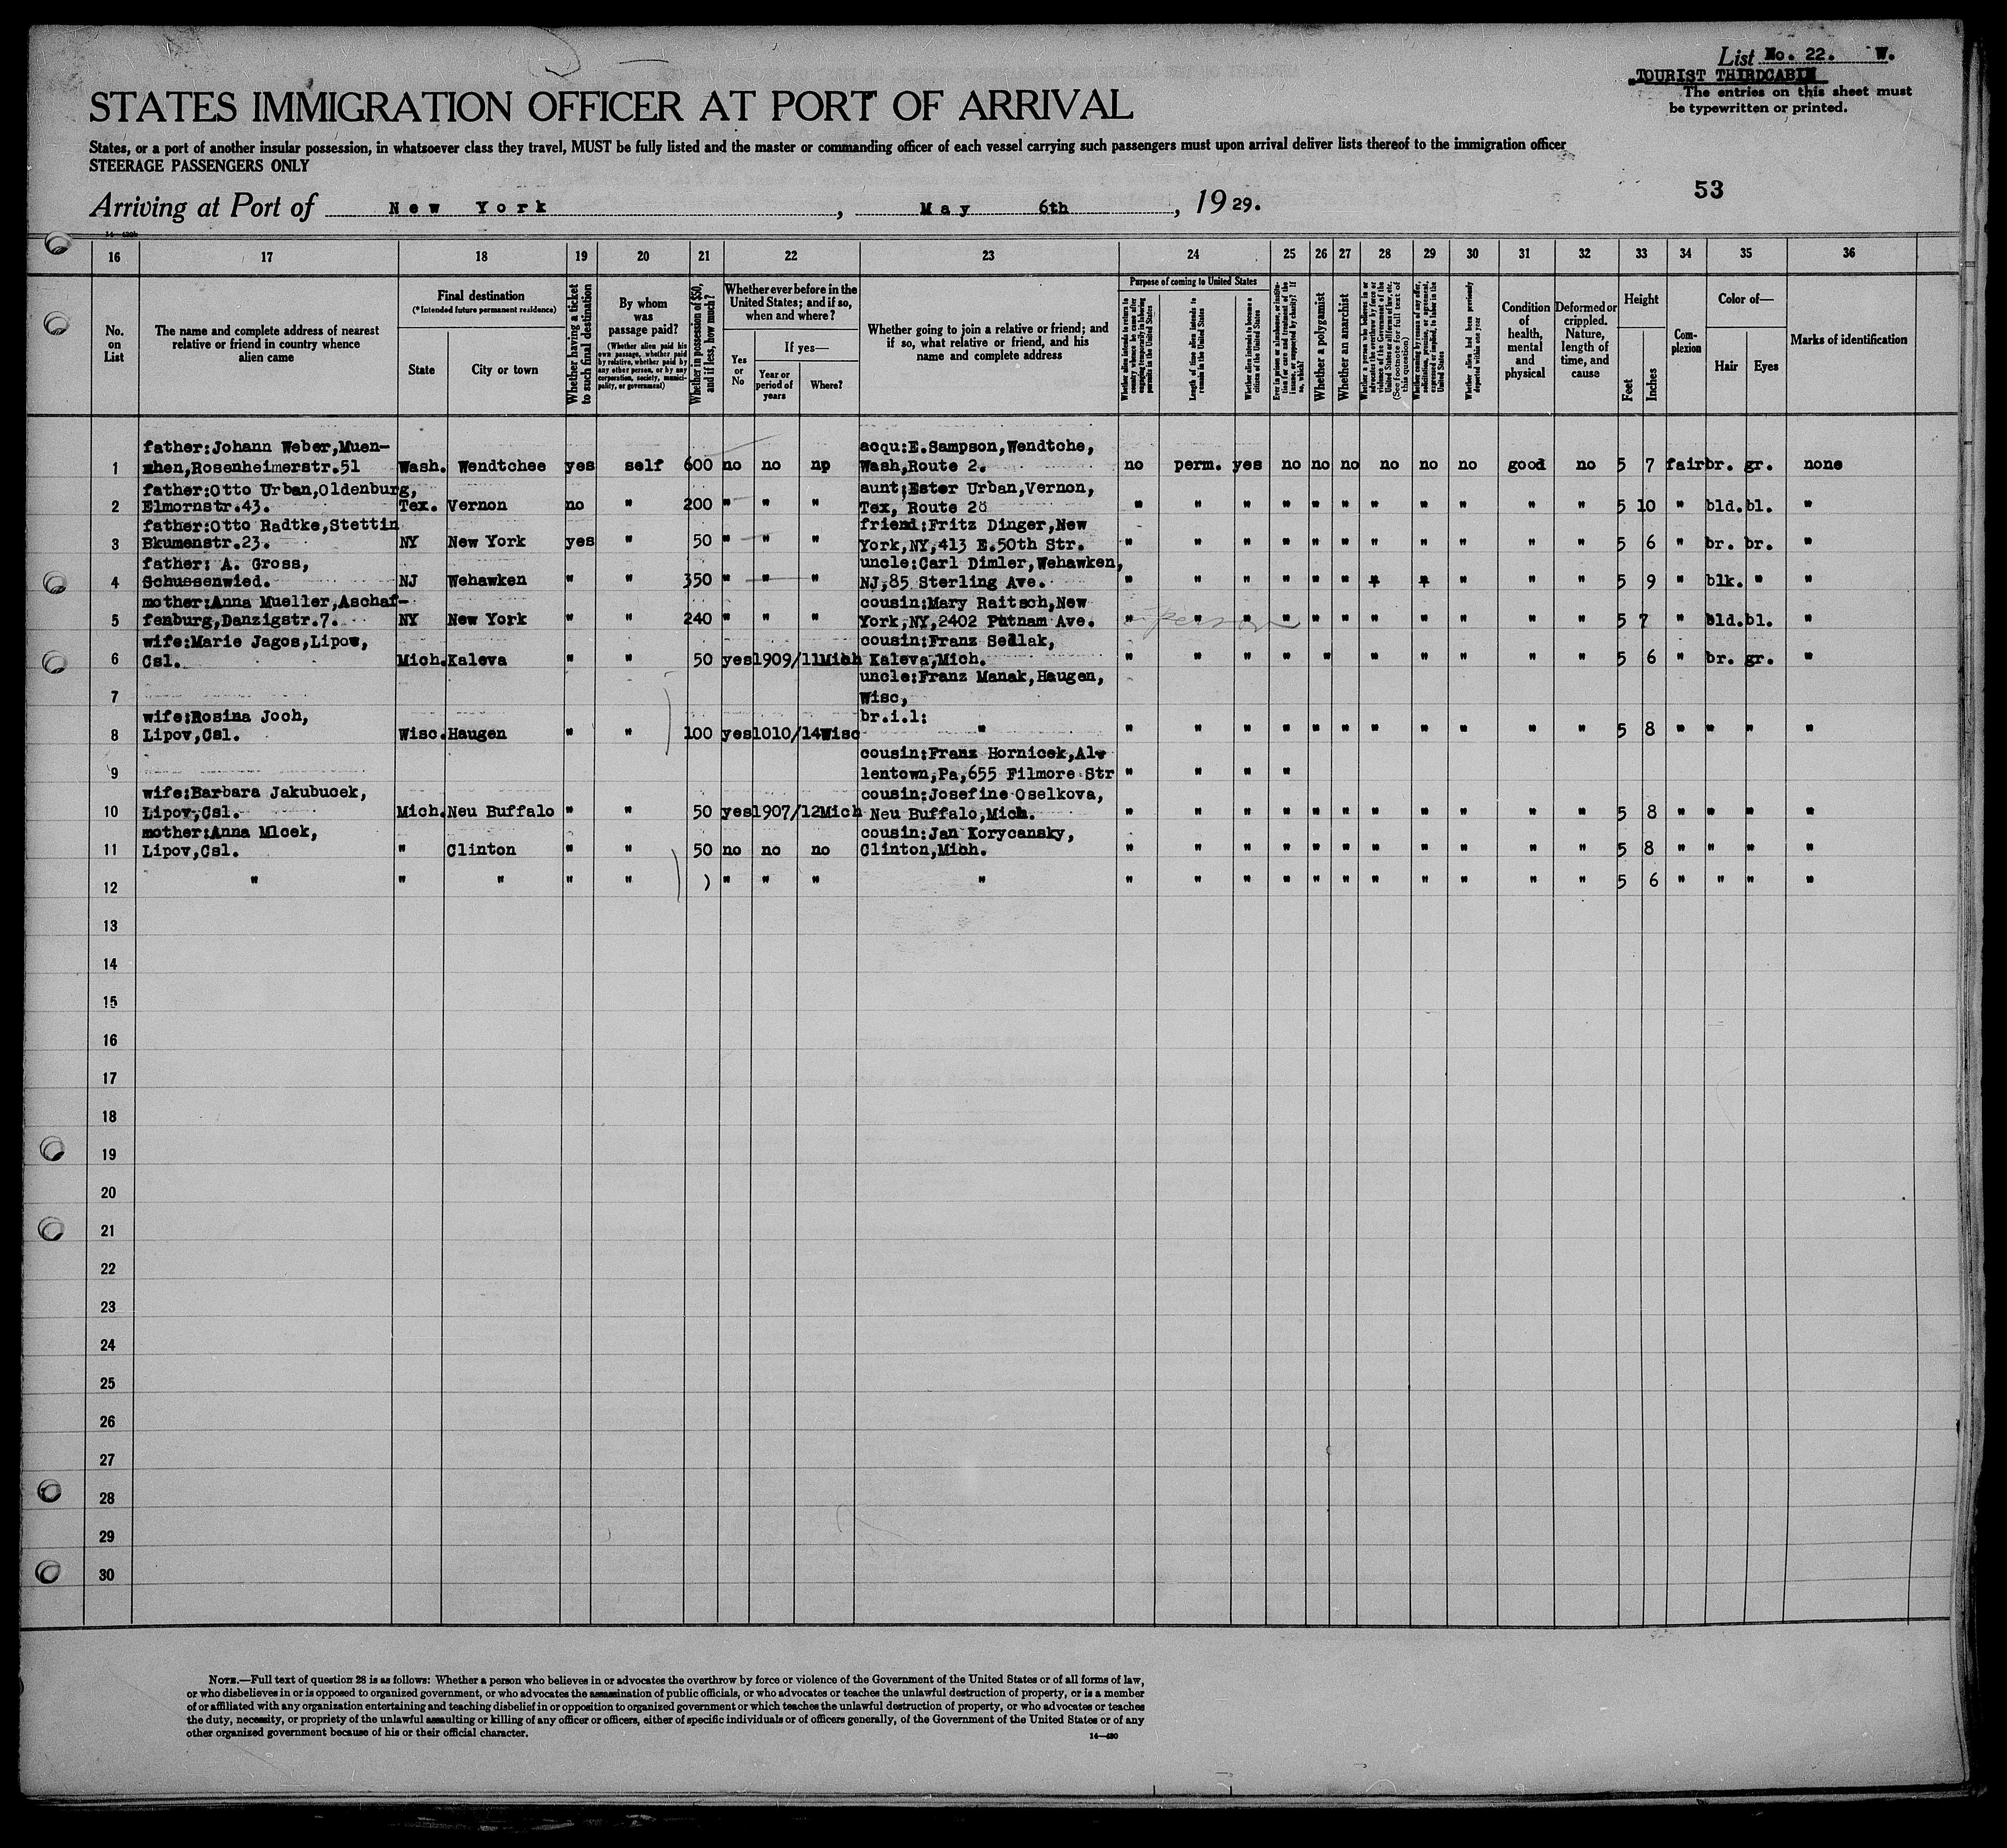 List No. 22. W.
TOURIST THIRDCABIN
The entries on this sheet must
be typewritten or printed.
STATES IMMIGRATION OFFICER AT PORT OF ARRIVAL
States, or a port of another insular possession, in whatsoever class they travel, MUST be fully listed and the master or commanding officer of each vessel carrying such passengers must upon arrival deliver lists thereof to the immigration officer
STEERAGE PASSENGERS ONLY
53
Arriving at Port of New York, May 6th, 1929.
16 17 18 19 20 21 22 23 24 25 26 27 28 29 30 31 32 33 34 35 36
No. on List
The name and complete address of nearest relative or friend in country whence alien came
Final destination
(*Intended future permanent residence)
State
City or town
Whether having a ticket to such final destination
By whom was passage paid?
(Whether alien paid his own passage, whether paid by relative, whether paid by any other person, or by any corporation, society, municipality, or government)
Whether in possession of $50, and if less, how much?
Whether ever before in the United States; and if so, when and where?
Yes or No
If yes—
Year or period of years
Where?
Whether going to join a relative or friend; and if so, what relative or friend, and his name and complete address
Purpose of coming to United States
Length of time alien intends to remain in the United States
Whether alien intends to become a citizen of the United States
Whether a polygamist
Whether an anarchist
Whether alien had been previously deported within one year
Condition of health, mental and physical
Deformed or crippled. Nature, length of time, and cause
Height
Feet
Inches
Complexion
Color of—
Hair
Eyes
Marks of identification
father:Johann Weber,Muen- acqu:E.Sampson,Wendtche,
1 xhen,Rosenheimerstr.51 Wash. Wendtchee yes self 600 no no np Wash,Route 2. no perm. yes no no no no no no good no 5 7 fair br. gr. none
father:Otto Urban,Oldenburg, aunt:Ester Urban,Vernon,
2 Elmornstr.43. Tex. Vernon no " 200 " " " Tex, Route 28 " " " " " " " " " " " 5 10 " bld. bl. "
father:Otto Radtke,Stettin friend:Fritz Dinger,New
3 Bkumenstr.23. NY New York yes " 50 " " " York,NY,413 E.50th Str. " " " " " " " " " " " 5 6 " br. br. "
father: A. Gross, uncle:Carl Dimler,Wehawken,
4 Schussenwied. NJ Wehawken " " 350 " " " NJ,85 Sterling Ave. " " " " " " " " " " " 5 9 " blk. " "
mother:Anna Mueller,Aschaf- cousin:Mary Raitsch,New
5 fenburg,Danzigstr.7. NY New York " " 240 " " " York,NY,2402 Putnam Ave. " " " " " " " " " " " 5 7 " bld. bl. "
wife:Marie Jagos,Lipow, cousin:Franz Sedlak,
6 Csl. Mich. Kaleva " " 50 yes 1909/11 Mich Kaleva,Mich. " " " " " " " " " " " 5 6 " br. gr. "
uncle:Franz Manak,Haugen,
7 Wisc,
wife:Rosina Joch, br.i.l:
8 Lipov,Csl. Wisc. Haugen " " 100 yes 1010/14 Wisc " " " " " " " " " " " " 5 8 " " " "
cousin:Franz Hornicek,Al-
9 lentown,Pa,655 Filmore Str " " " "
wife:Barbara Jakubucek, cousin:Josefine Oselkova,
10 Lipov,Csl. Mich. Neu Buffalo " " 50 yes 1907/12 Mich Neu Buffalo,Mich. " " " " " " " " " " " 5 8 " " " "
mother:Anna Mlcek, cousin:Jan Korycansky,
11 Lipov,Csl. " Clinton " " 50 no no no Clinton,Mich. " " " " " " " " " " " 5 8 " " " "
12 " " " " " ) " " " " " " " " " " " " " " " 5 6 " " " "
13
14
15
16
17
18
19
20
21
22
23
24
25
26
27
28
29
30
NOTE.—Full text of question 28 is as follows: Whether a person who believes in or advocates the overthrow by force or violence of the Government of the United States or of all forms of law,
or who disbelieves in or is opposed to organized government, or who advocates the assassination of public officials, or who advocates or teaches the unlawful destruction of property, or is a member
of or affiliated with any organization entertaining and teaching disbelief in or opposition to organized government or which teaches the unlawful destruction of property, or who advocates or teaches
the duty, necessity, or propriety of the unlawful assaulting or killing of any officer or officers, either of specific individuals or of officers generally, of the Government of the United States or of any
other organized government because of his or their official character.
14—480